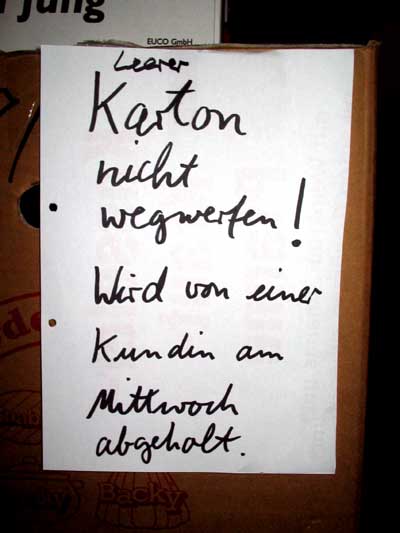 r jung
EUCO GmbH
Leerer
Karton
nicht
wegwerfen!
Wird von einer
Kundin am
Mittwoch
abgeholt.
Backy